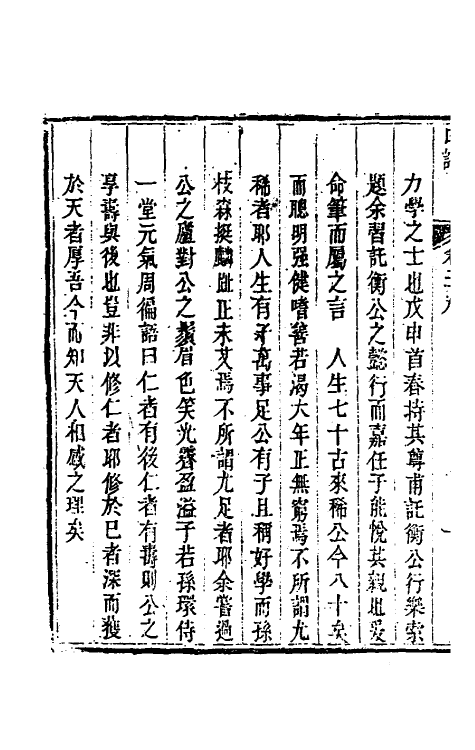 力學之士也戊申首春持其尊甫託衡公行樂索
題余習託衡公之懿行而嘉任子能悅其親也爰
命筆而屬之言　人生七十古來稀公今八十矣
而聰明强健嗜善若渴大年正無窮焉不所謂尤
稀者耶人生有子萬事足公有子且稱好學而孫
枝森挺麟趾正未艾焉不所謂尤足者耶余嘗過
公之廬對公之鬚眉色笑光霽盈溢子若孫環侍
一堂元氣周徧諺曰仁者有後仁者有壽則公之
享壽與後也豈非以修仁者耶修於已者深而獲
於天者厚吾今而知天人相感之理矣